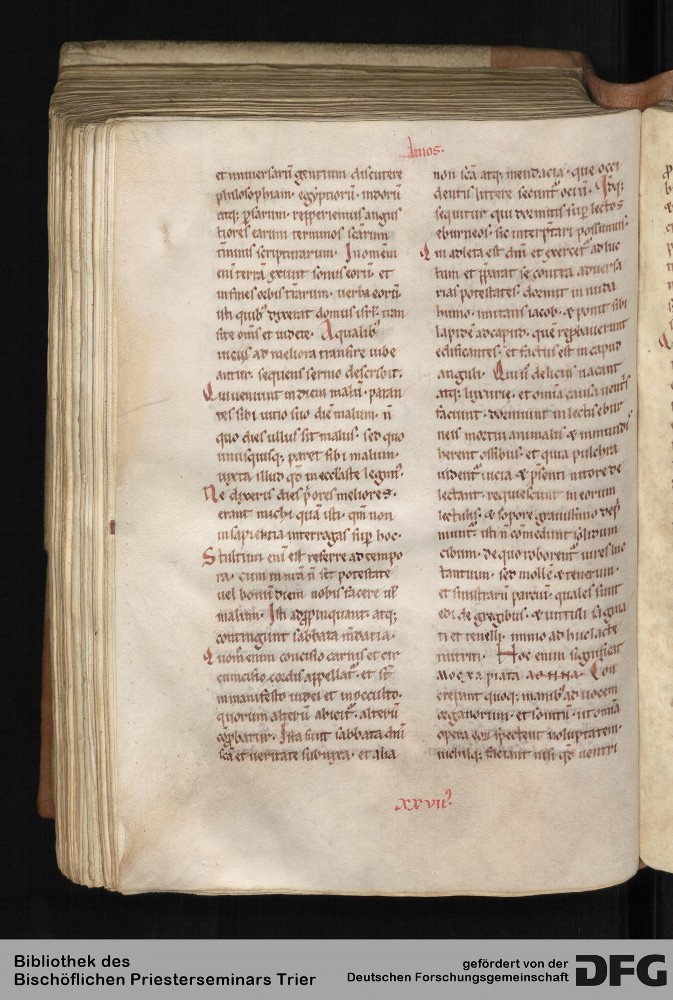 Amos.
et uniuersarū gentium discutere
philosophiam. egẏptiorū. indorū
atq; ꝑsarum. repperiemus angus
tiores earum terminos scārum
tīminis scripturarum. In omēm
eni terrā exiuit sonus eorū. et
in fines orbis tr̄arum. uerba eorū.
isti quibꝰ dixerat domus isrl. tran
site om̄s et uidete. A qualibꝰ
incus ad meliora transire iube
antur. sequens sermo describit.
Qui uenitint in diem malū. paran
tes sibi uitio suo diē malum. n̄
quo dies ullus sit malus. sed quo
unusquisq; paret sibi malum.
iuxta illud qd̄ in eccl̄aste legimꝰ.
Ne dixeris dies pͥores meliores.
erant michi quā isti. qm̄ non
in sapientia interrogas suꝑ hoc.
Stultum eni est referre ad tempo
ra. cum in nr̄a n̄ sit potestate
uel bonū diem nobis facere ul̓
malum. Isti adp̱pinquant. atq;
contingunt sabbata m̄datia.
Quom̊ enim concisio carnis et cir
cumcisio cordis appellatꝰ. et sic̄
in manifesto iudei et in occulto.
quorum alterū abicitꝰ. alterū
cōprobatur. Ista sunt sabbata dm̄i
scā et ueritate subnixa. et alia
non scā atq; mendacia. que occi
dentis littere secuntꝰ ociū. Itaq;
sequitur qui dormitis suꝑ lectos
eburneos. sic interp̄tari possumus.
Qui adleta est dm̄i et exercetꝰ ad luc
tum et p̄parat se contra aduersa
rias potestates. dormit in nuda
humo. imitans iacob. & ponit sibi
lapidē ad caput. quē rep̱bauerunt
edificantes. et factus est in caput
anguli. Qui u̓ deliciis uacant
atq; luxurie. et omīa causa uentͥs
faciunt. dormiunt in lectis ebur
neis mortui animalis & inmundi
herent ossibus. et quia pulchra
uidentꝰ iuicia & p̄senti nitore de
lectant. requiescunt in eorum
lectulis. & sopore grauissimo dep̄
munt. isti n̄ comedunt solidum
cibum. de quo roborentꝰ uires luc
tantium. sed molle & tenerum.
et similitarii pardiū. quales sunt
edi de gregibus. & uituli sagina
ti et tenelli. immo adhuc lacte
nutriti. Hoc enim significat
Con
crepant quoq; manibꝰ ad uocem
organorum. et sonitū. ut omnia
opera eorū spectent uoluptatem.
nichilq; faciant nisi qd̄ uentri
xxvii.
Bibliothek des
Bischöflichen Priesterseminars Trier
gefördert von der
Deutschen Forschungsgemeinschaft
DFG